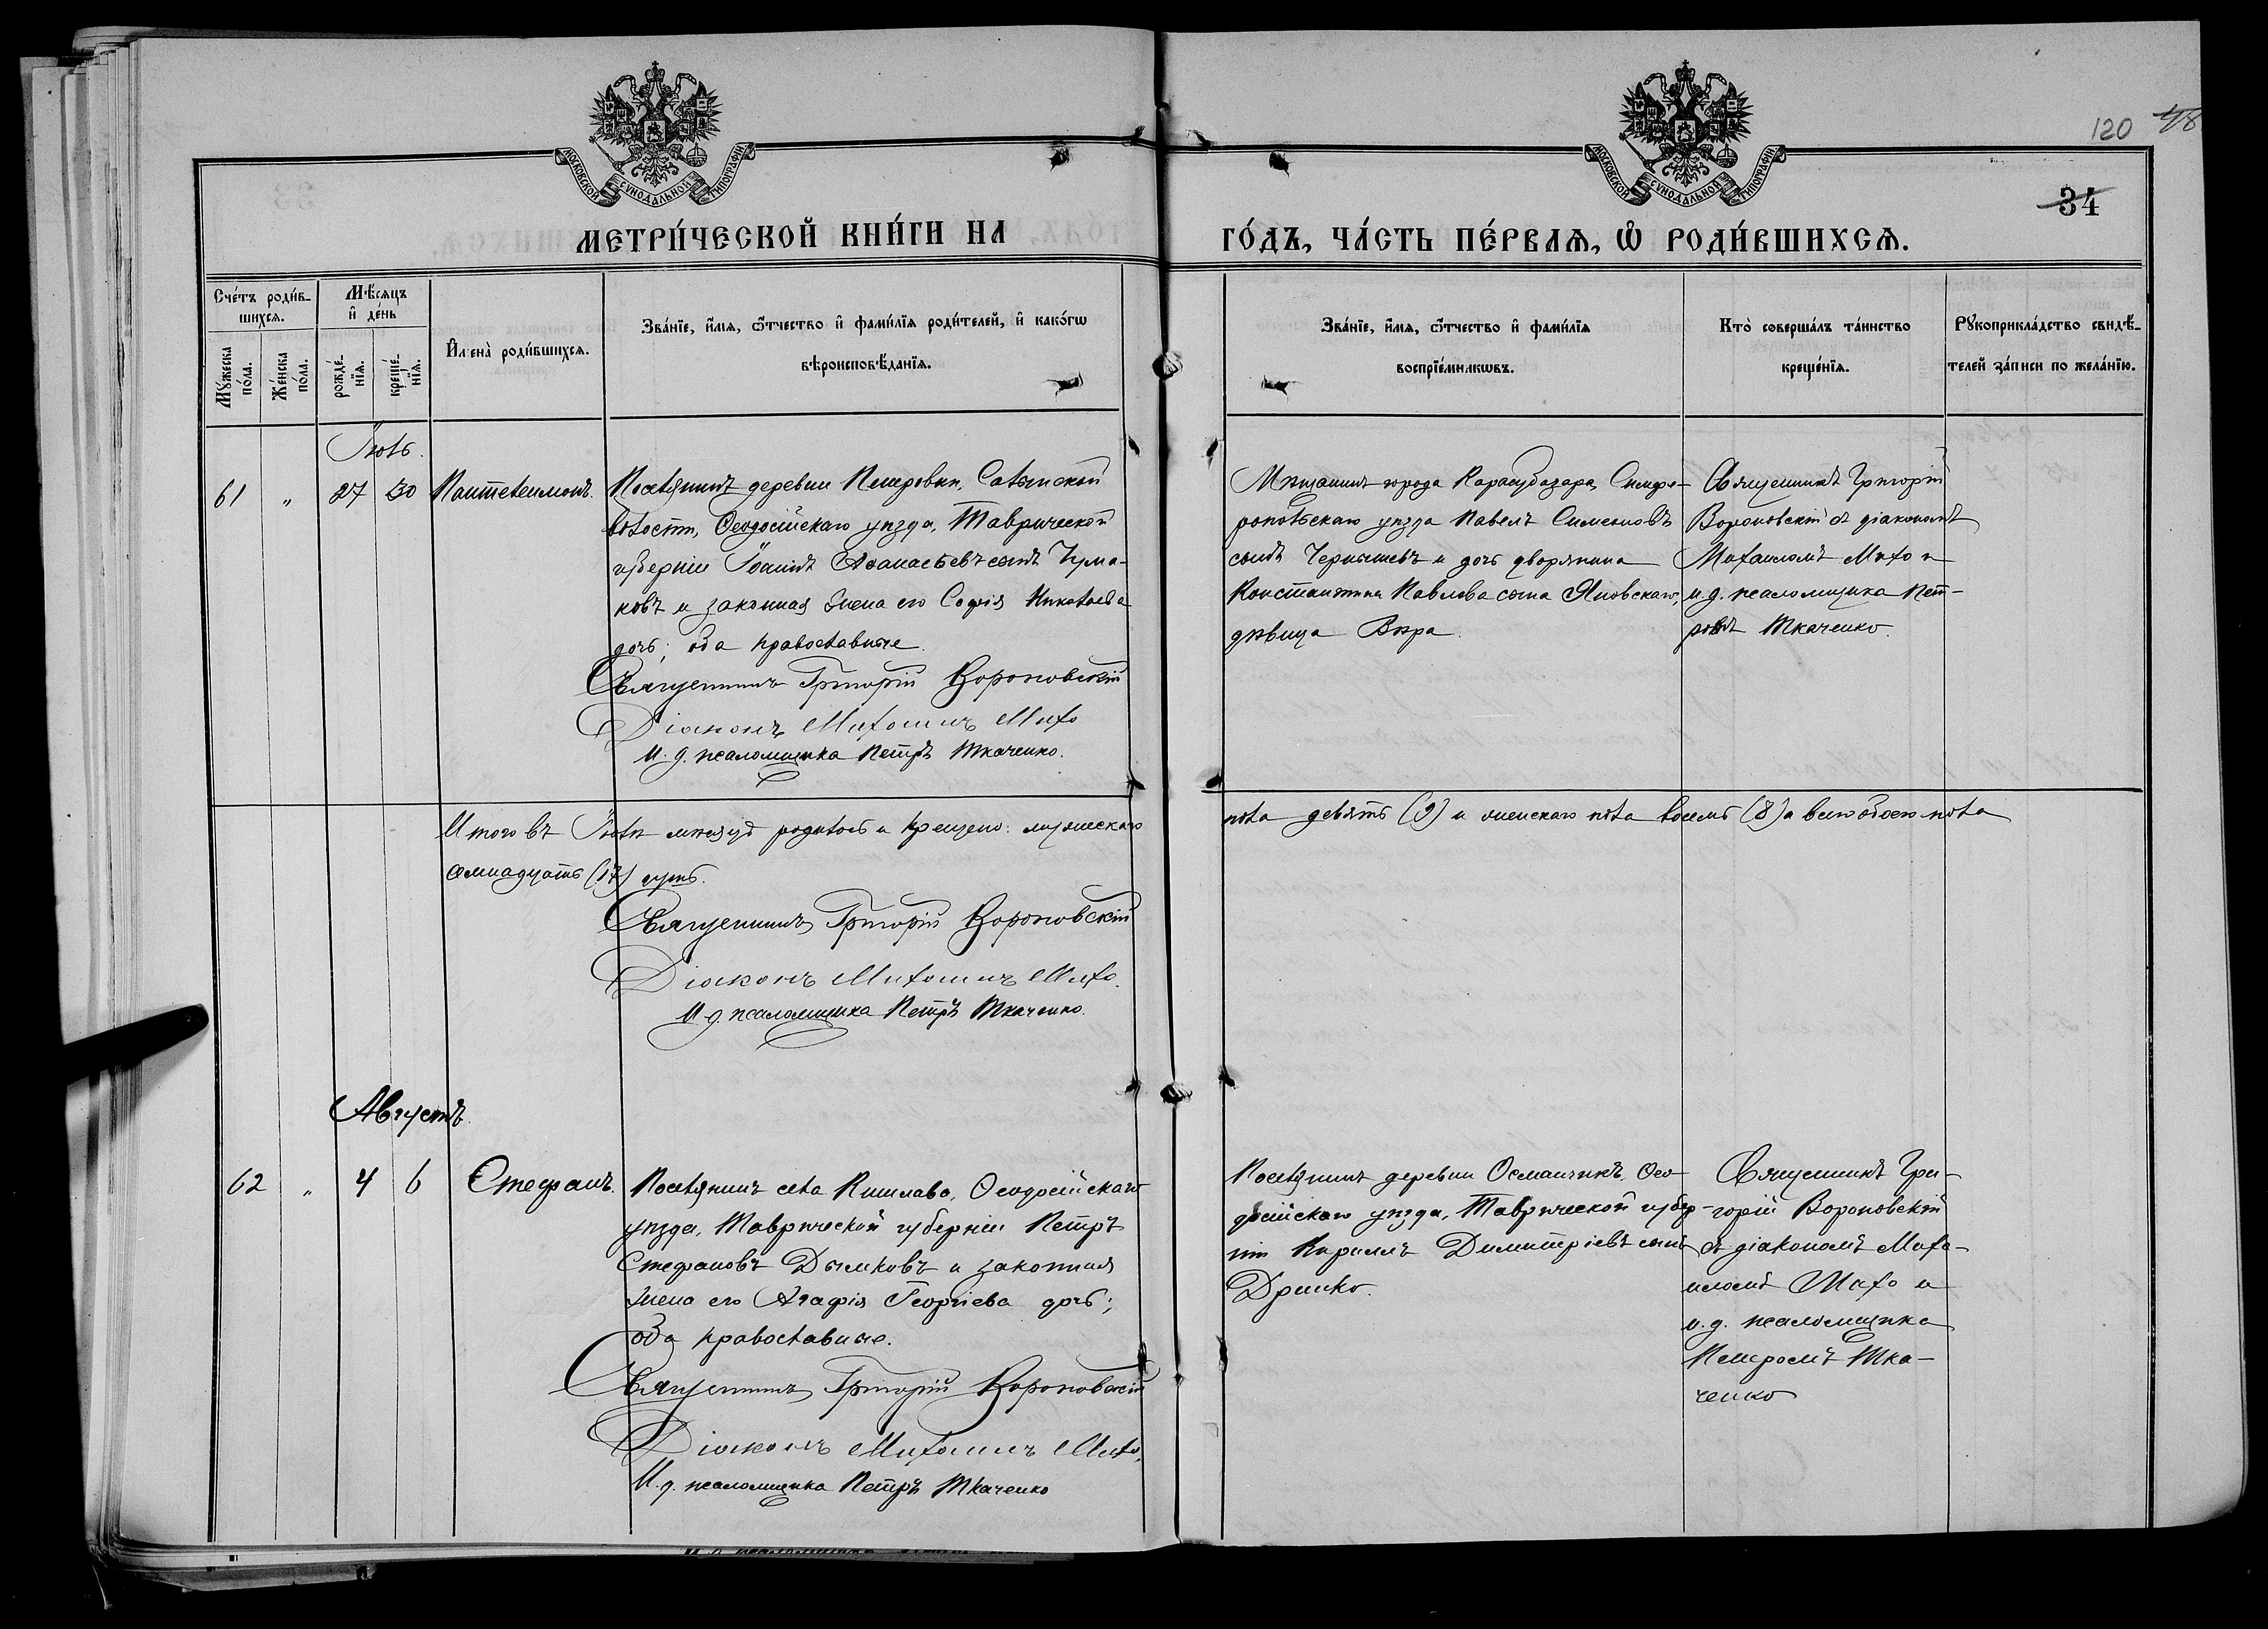 120 48
34
МОСКОВСКОЙ СУНОДАЛЬНОЙ ТИПОГРАФІИ
МОСКОВСКОЙ СУНОДАЛЬНОЙ ТИПОГРАФІИ
МЕТРИ́ЧЕСКОЙ КНИ́ГИ НА
ГО́ДЪ, ЧА́СТЬ ПЕ́РВАѦ, Ѡ҆ РОДИ́ВШИХСѦ.
Сче́тъ роди́в-
шихсѧ.
Мѣ́сѧцъ
и҆ де́нь
Мꙋ́жеска
по́ла.
Же́нска
по́ла.
рожде́-
нїѧ.
креще́-
нїѧ.
И҆мена̀ роди́вшихсѧ.
Зва́нїе, и҆́мѧ, ѻ҆́тчество и҆ фами́лїѧ роди́телей, и҆ како́гѡ
вѣроисповѣ́данїѧ.
Зва́нїе, и҆́мѧ, ѻ҆́тчество и҆ фами́лїѧ
воспрїе́мникѡвъ.
Кто̀ соверша́лъ та́инство
креще́нїѧ.
Рꙋкоприкла́дство свидѣ́-
телей за́писи по жела́нїю.
Іюль.
61 „ 27 30 Пантелеимонъ.
Поселянинъ деревни Петровки, Салынской
волости, Ѳеодосійскаго уѣзда, Таврической
губерніи Іоаннъ Аѳанасьевъ сынъ Чума-
ковъ и законная жена его Софія Николаева
дочь; оба православные.
Священникъ Григорій Вороновскій
Діаконъ Михаилъ Михо
И. д. псаломщика Петръ Ткаченко.
Мѣщанинъ города Карасубазара, Симфе-
ропольскаго уѣзда Павелъ Симеоновъ
сынъ Чернышевъ и дочь дворянина
Константина Павлова сына Яновскаго,
дѣвица Вѣра.
Священникъ Григорій
Вороновскій съ діакономъ
Михаиломъ Михо и
и. д. псаломщика Пет-
ромъ Ткаченко.
Итого въ Іюлѣ мѣсяцѣ родилось и крещено: мужескаго
пола девять (9) и женскаго пола восемь (8) а всего обоего пола
семнадцать (17) душъ.
Священникъ Григорій Вороновскій
Діаконъ Михаилъ Михо.
И. д. псаломщика Петръ Ткаченко.
Августъ.
62 „ 4 6 Стефанъ.
Поселянинъ села Кишлава, Ѳеодосійскаго
уѣзда, Таврической губерніи Петръ
Стефановъ Дымковъ и законная
жена его Агафія Георгіева дочь;
оба православные.
Священникъ Григорій Вороновскій
Діаконъ Михаилъ Михо,
И. д. псаломщика Петръ Ткаченко
Поселянинъ деревни Османчикъ, Ѳео-
досійскаго уѣзда, Таврической губер-
ніи Кириллъ Димитріевъ сынъ
Дринко.
Священникъ Гри-
горій Вороновскій
съ діакономъ Миха-
иломъ Михо и
и. д. псаломщика
Петромъ Тка-
ченко